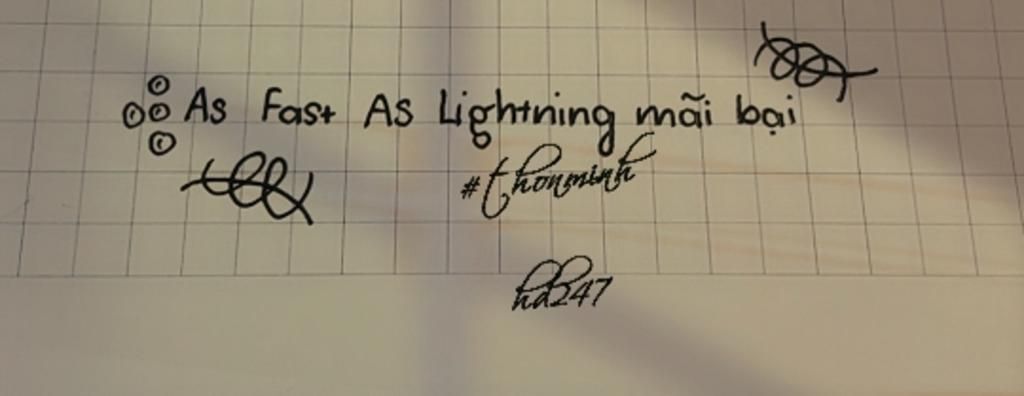 As Fast As Lightning mãi bại
#thonminh
hd247